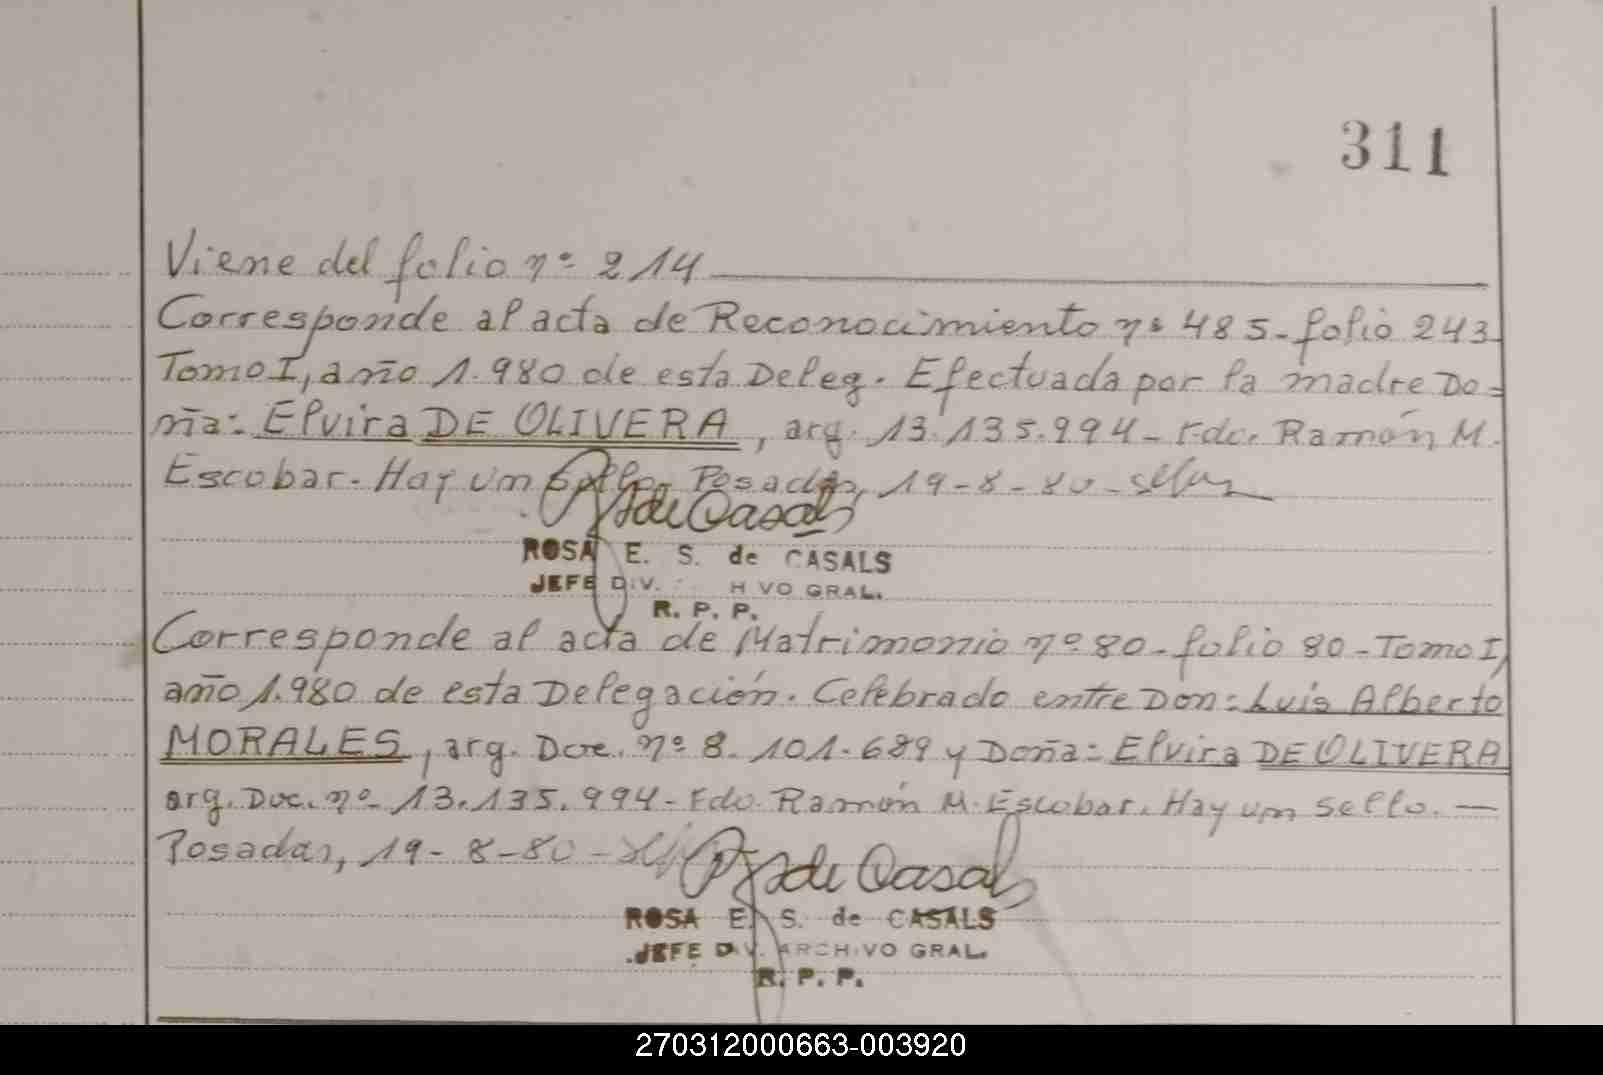 311
Viene del folio nº 214
Corresponde al acta de Reconocimiento nº 485-folio 243
Tomo I, año 1.980 de esta Deleg. Efectuada por la madre Do=
ña: Elvira DE OLIVERA, arg. 13.135.994- Fdo. Ramón M.
Escobar. Hay un sello. Posadas, 19-8-80-
RS de Casals
ROSA E. S. de CASALS
JEFE DIV. HIVO GRAL.
R. P. P.
Corresponde al acta de Matrimonio nº 80-folio 80-Tomo I,
año 1.980 de esta Delegación. Celebrado entre Don: Luis Alberto
MORALES, arg. Doc. nº 8.101.689 y Doña: Elvira DE OLIVERA
arg. Doc. nº 13.135.994- Fdo. Ramón M. Escobar. Hay un sello. —
Posadas, 19-8-80-
de Casals
ROSA E. S. de CASALS
JEFE DIV. ARCHIVO GRAL.
R. P. P.
270312000663-003920